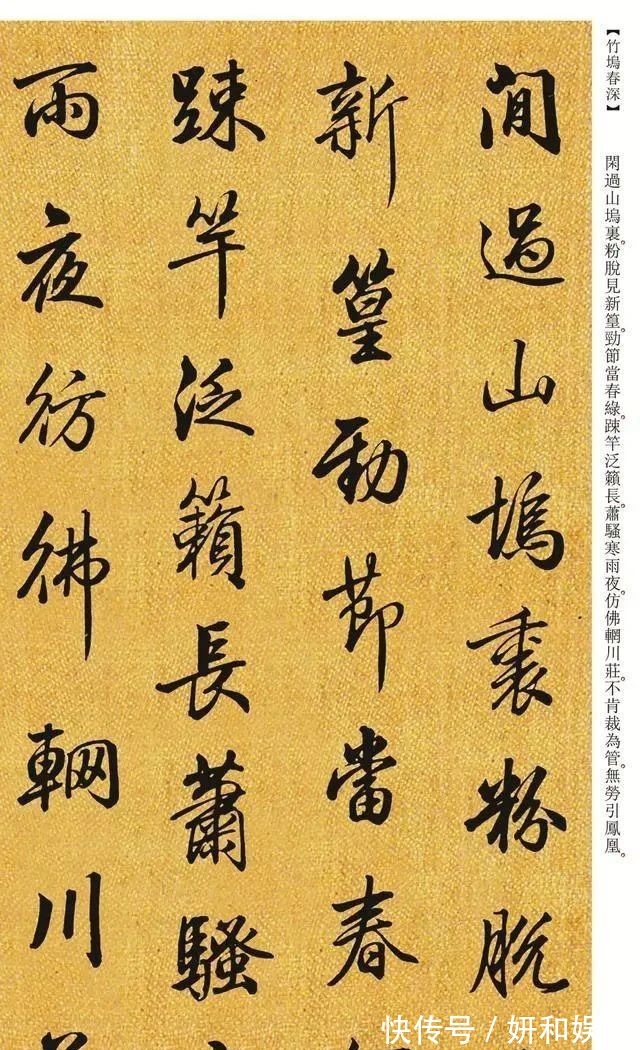 【竹塢春深】 閑過山塢裏。粉脫見新篁。勁節當春綠。踈竿泛籟長。蕭騷寒雨夜。仿佛輞川莊。不肯裁為管。無勞引鳳凰。
閒過山塢裏粉脫
新篁勁節當春
踈竿泛籟長蕭騷
雨夜彷彿輞川
快传号／妍和娱